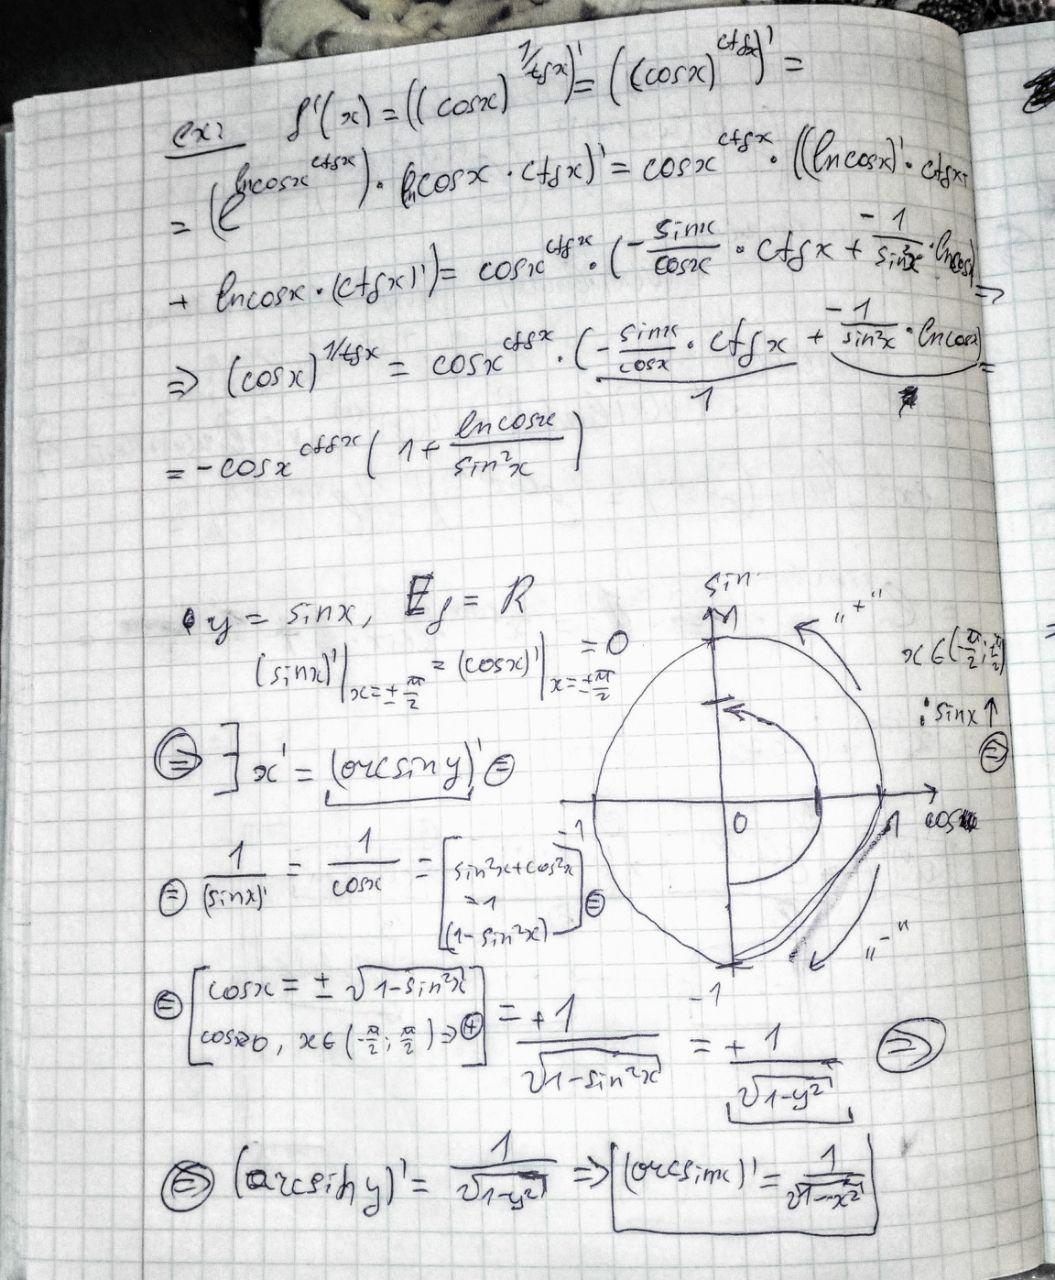 ex: f'(x) = ((cosx)^{1/tgx})' = ((cosx)^{ctgx})' =
= (e^{lncosx^{ctgx}}) · (lncosx · ctgx)' = cosx^{ctgx} · ((lncosx)' · ctgx+
+ lncosx · (ctgx)') = cosx^{ctgx} · (-\frac{sinx}{cosx} · ctgx + \frac{-1}{sin²x} · lncosx) ⇒
⇒ (cosx)^{1/tgx} = cosx^{ctgx} · (-\frac{sinx}{cosx} · ctgx + \frac{-1}{sin²x} · lncosx) =
1
= -cosx^{ctgx} (1 + \frac{lncosx}{sin²x})
• y = sinx, E_f = R
(sinx)'|_{x=±\frac{π}{2}} = (cosx)'|_{x=±\frac{π}{2}} = 0
⇒ ] x' = (arcsiny)' =
= \frac{1}{(sinx)'} = \frac{1}{cosx} = [sin²x+cos²x
=1
(1-sin²x)] =
= [cosx = ± √(1-sin²x)
cos≥0, x∈(-\frac{π}{2}; \frac{π}{2}) ⇒ +] = \frac{+1}{√(1-sin²x)} = \frac{+1}{√(1-y²)} ⇒
⇒ (arcsin y)' = \frac{1}{√(1-y²)} ⇒ (arcsinx)' = \frac{1}{√(1-x²)}
sin
1
„+"
x∈(-\frac{π}{2}; \frac{π}{2})
: sinx↑
⇒
-1
0
1
cos
„-"
-1